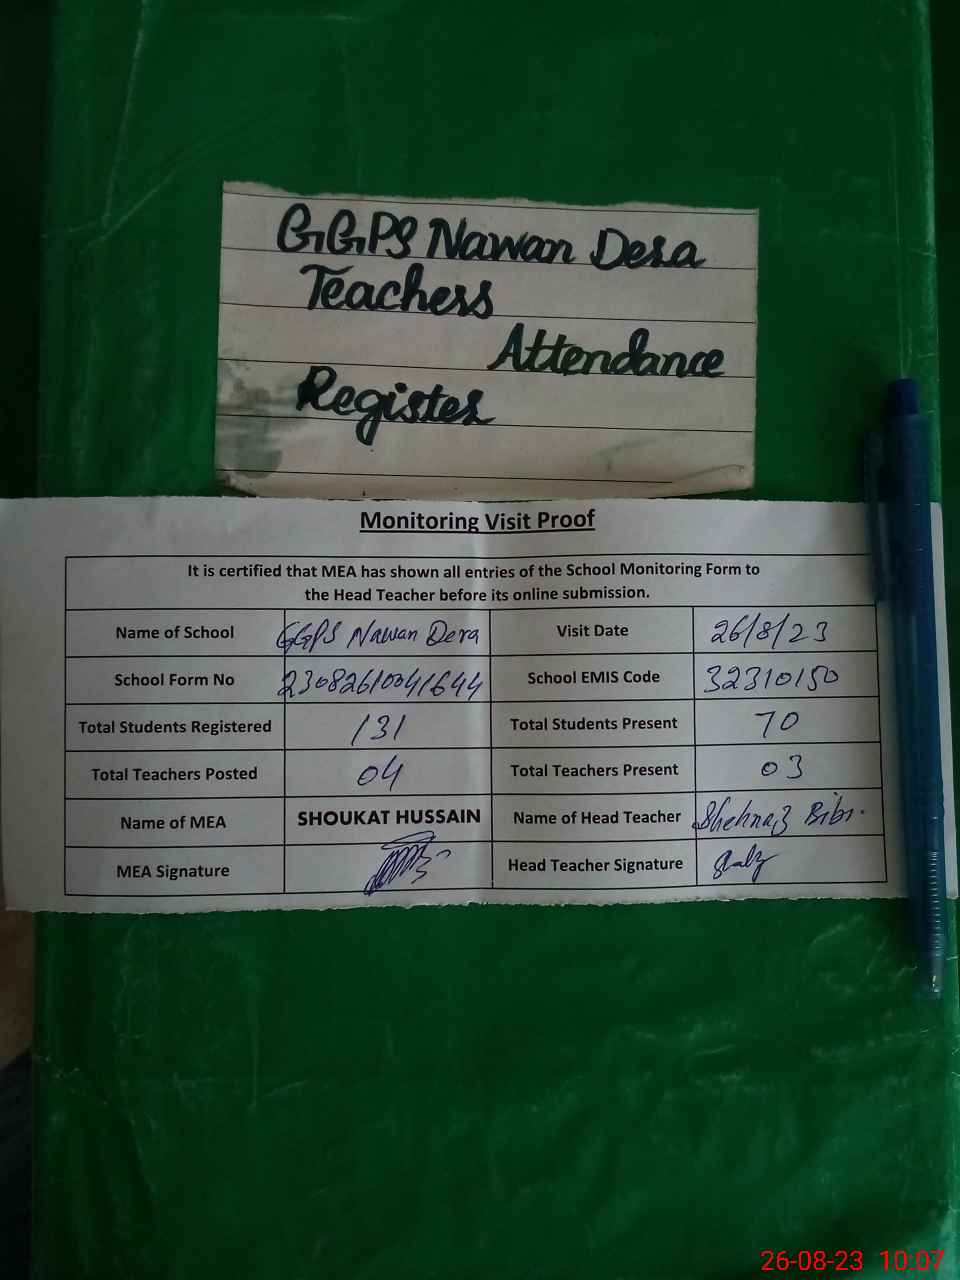 GGPS Nawan Dera
Teachers
Attendance
Register
Monitoring Visit Proof
It is certified that MEA has shown all entries of the School Monitoring Form to
the Head Teacher before its online submission.
Name of School GGPS Nawan Dera Visit Date 26/8/23
School Form No 23082610041644 School EMIS Code 32310150
Total Students Registered 131 Total Students Present 70
Total Teachers Posted 04 Total Teachers Present 03
Name of MEA SHOUKAT HUSSAIN Name of Head Teacher Shehnaz Bibi.
MEA Signature Head Teacher Signature
26-08-23 10:07